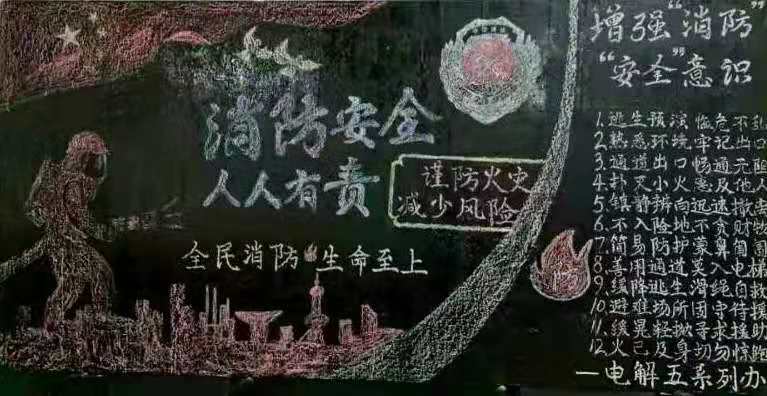 消防安全
人人有责
谨防火灾
减少风险
全民消防 生命至上
增强“消防”
“安全”意识
1.逃生预演临危不乱
2.熟悉环境牢记出口
3.通道出口畅通无险
4.扑灭小火惠及他人
5.镇静辨向迅速撤离
6.不入险地不贪财物
7.简易防护蒙鼻匍匐
8.善用通道莫入电梯
9.缓降逃生滑绳自救
10.避难场所固守待援
11.缓晃轻抛寻求援助
12.火已及身切勿惊跑
一电解五系列办